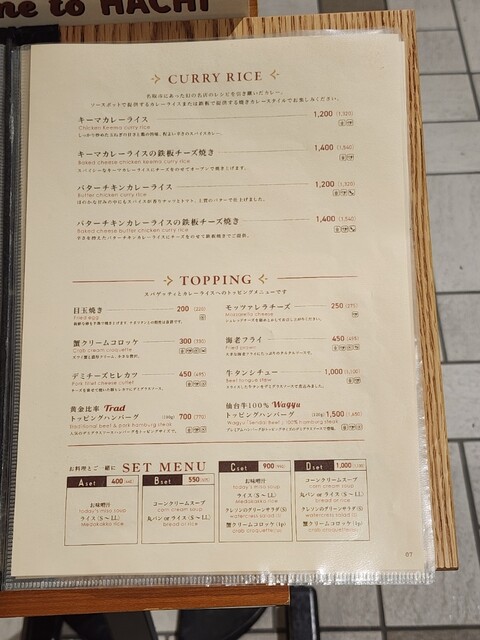 ne to HACHI
CURRY RICE
キーマカレーライス 1,200 (1,320)
Chicken keema curry rice
キーマカレーライスの鉄板チーズ焼き 1,400 (1,540)
Baked cheese chicken keema curry rice
スパイシーなキーマカレーライスにチーズをのせてオーブンで焼き上げます。
バターチキンカレーライス 1,200 (1,320)
Butter chicken curry rice
バターチキンカレーライスの鉄板チーズ焼き 1,400 (1,540)
Baked cheese butter chicken curry rice
TOPPING
スパゲッティとカレーライスへのトッピングメニューです
目玉焼き 200 (220)
Fried egg
モッツァレラチーズ 250 (275)
Mozzarella cheese
蟹クリームコロッケ 300 (330)
Crab cream croquette
海老フライ 450 (495)
Fried prawn
デミチーズヒレカツ 450 (495)
Pork fillet cheese cutlet
牛タンシチュー 1,000 (1,100)
Beef tongue stew
黄金比率 Trad
トッピングハンバーグ 700 (770)
Traditional beef & pork hamburg steak
仙台牛100% Wagyu
トッピングハンバーグ 1,500 (1,650)
Wagyu "Sendai Beef" 100% hamburg steak
お料理とご一緒に SET MENU
A set 400
お味噌汁
today's miso soup
ライス (S～LL)
Medakakko rice
B set 550
コーンクリームスープ
corn cream soup
丸パン or ライス (S～LL)
bread or rice
C set 900
お味噌汁
today's miso soup
ライス (S～LL)
Medakakko rice
クレソンのグリーンサラダ (S)
watercress salad (S)
蟹クリームコロッケ (1p)
crab croquette (1p)
D set 1,000
コーンクリームスープ
corn cream soup
丸パン or ライス (S～LL)
bread or rice
クレソンのグリーンサラダ (S)
watercress salad (S)
蟹クリームコロッケ (1p)
crab croquette (1p)
07